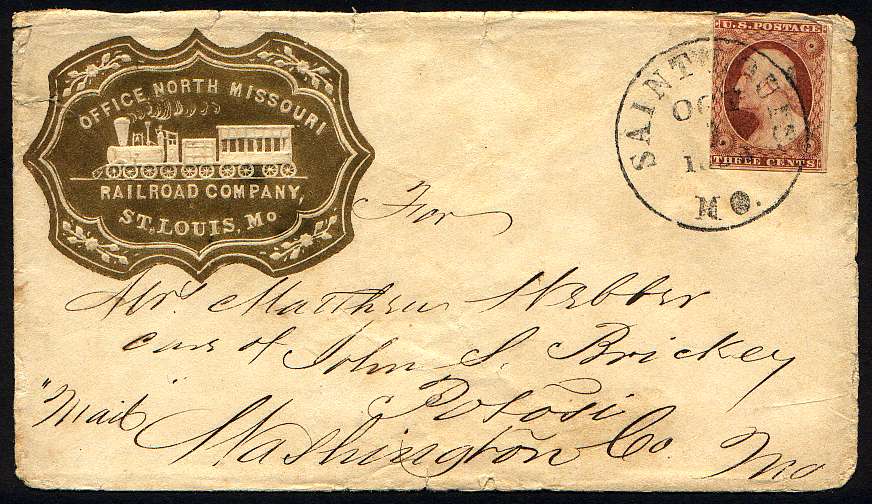 OFFICE NORTH MISSOURI
RAILROAD COMPANY,
ST. LOUIS, Mo
U.S. POSTAGE
THREE CENTS
SAINT LOUIS
OC
Mo.
For
Mr. Matthew Webber
care of John S. Brickey
Potosi
"Mail" Washington Co Mo